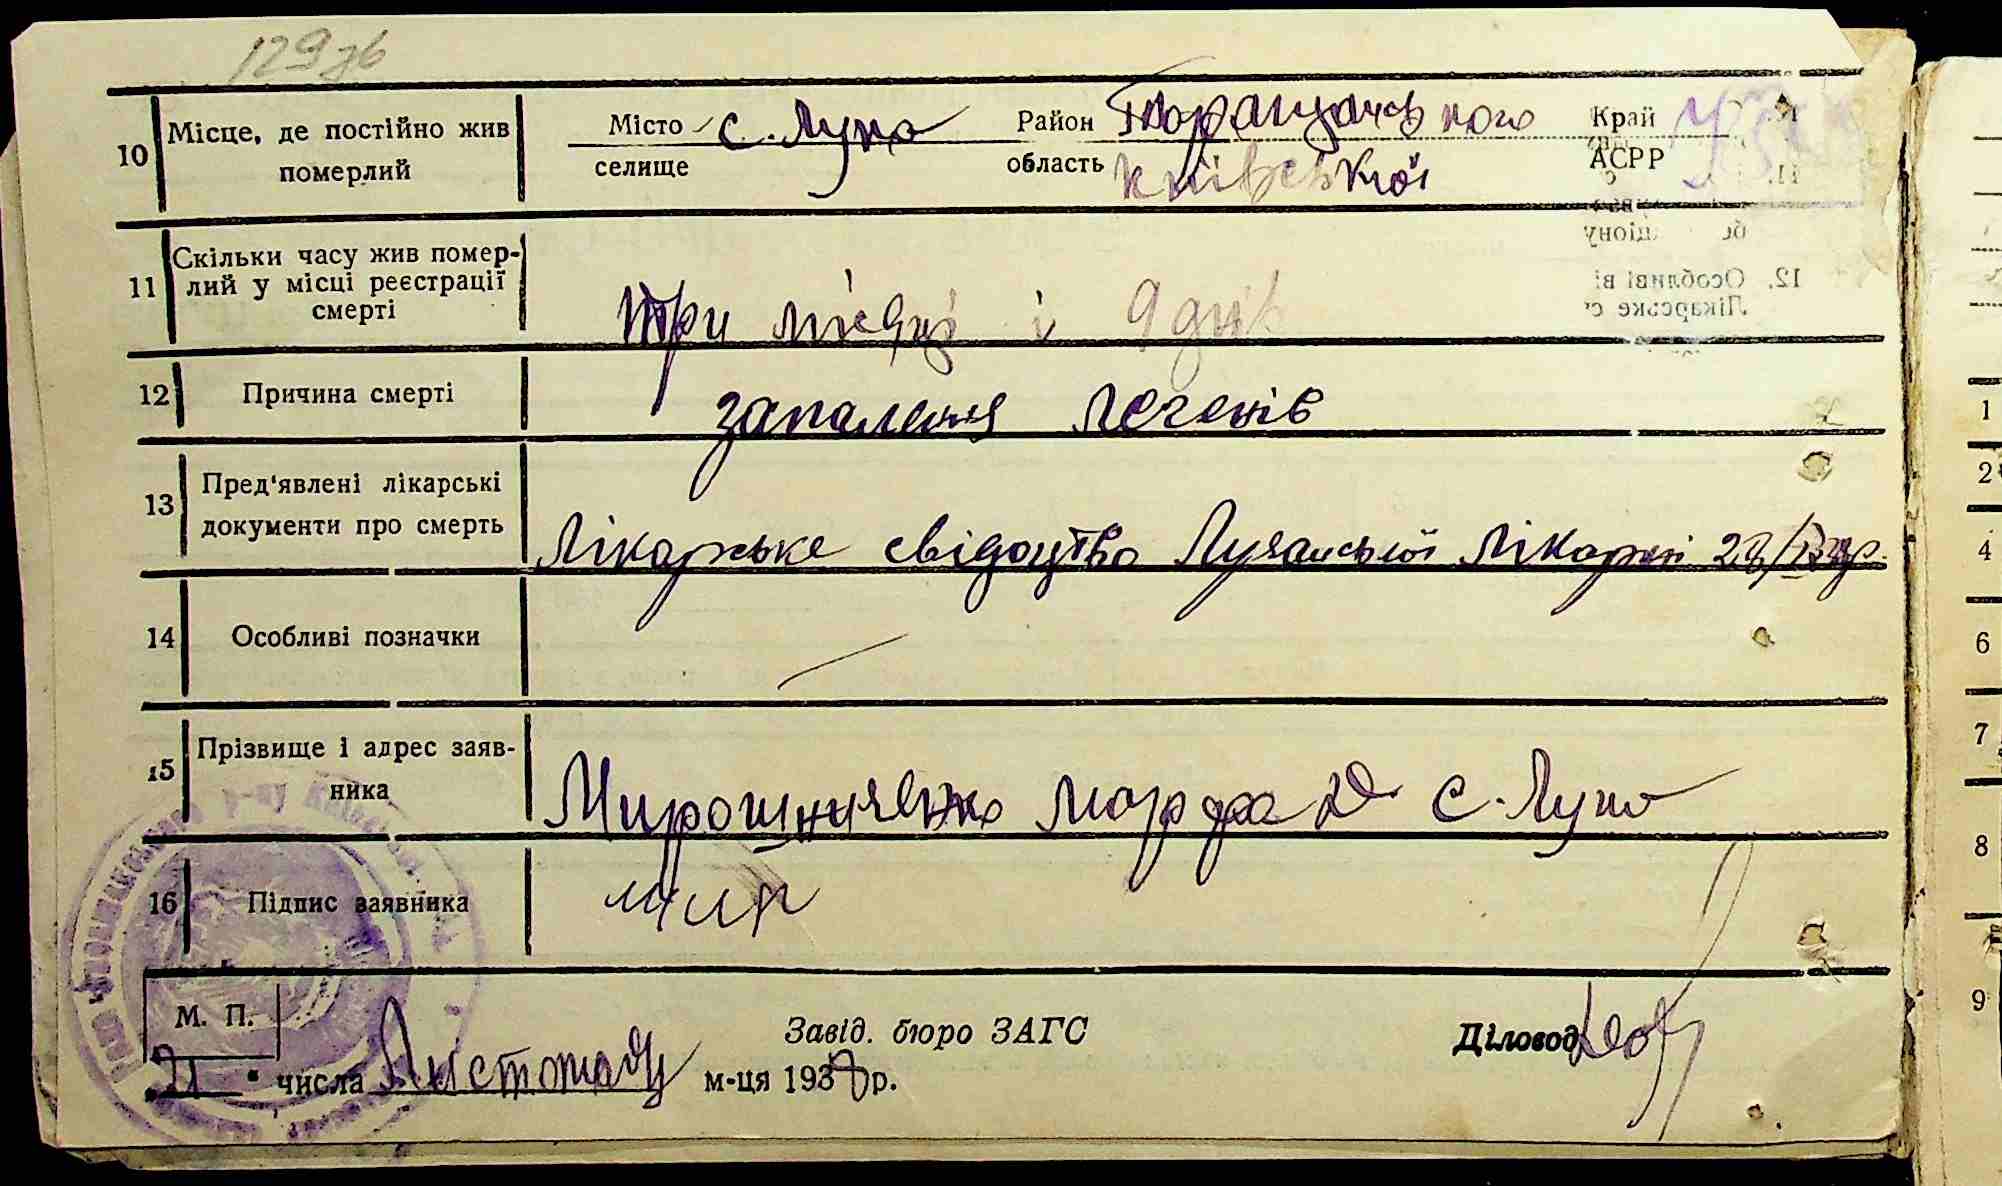 129 зв
10 Місце, де постійно жив померлий
Місто с. Лука Район Таращанського Край
селище область київської АСРР
11 Скільки часу жив помер-
лий у місці реєстрації
смерті
три місяці і 9 днів
12 Причина смерті
запалення легенів
13 Пред'явлені лікарські
документи про смерть
Лікарське свідоцтво Лучанської лікарні
14 Особливі позначки —
15 Прізвище і адрес заяв-
ника
Мирошниченко Марфа с. Лука
16 Підпис заявника
Мир
М. П.
Завід. бюро ЗАГС Діловод
21 " числа Листопаду м-ця 1938 р.
12. Особливі ві
Лікарське с
1
2
4
6
7
8
9